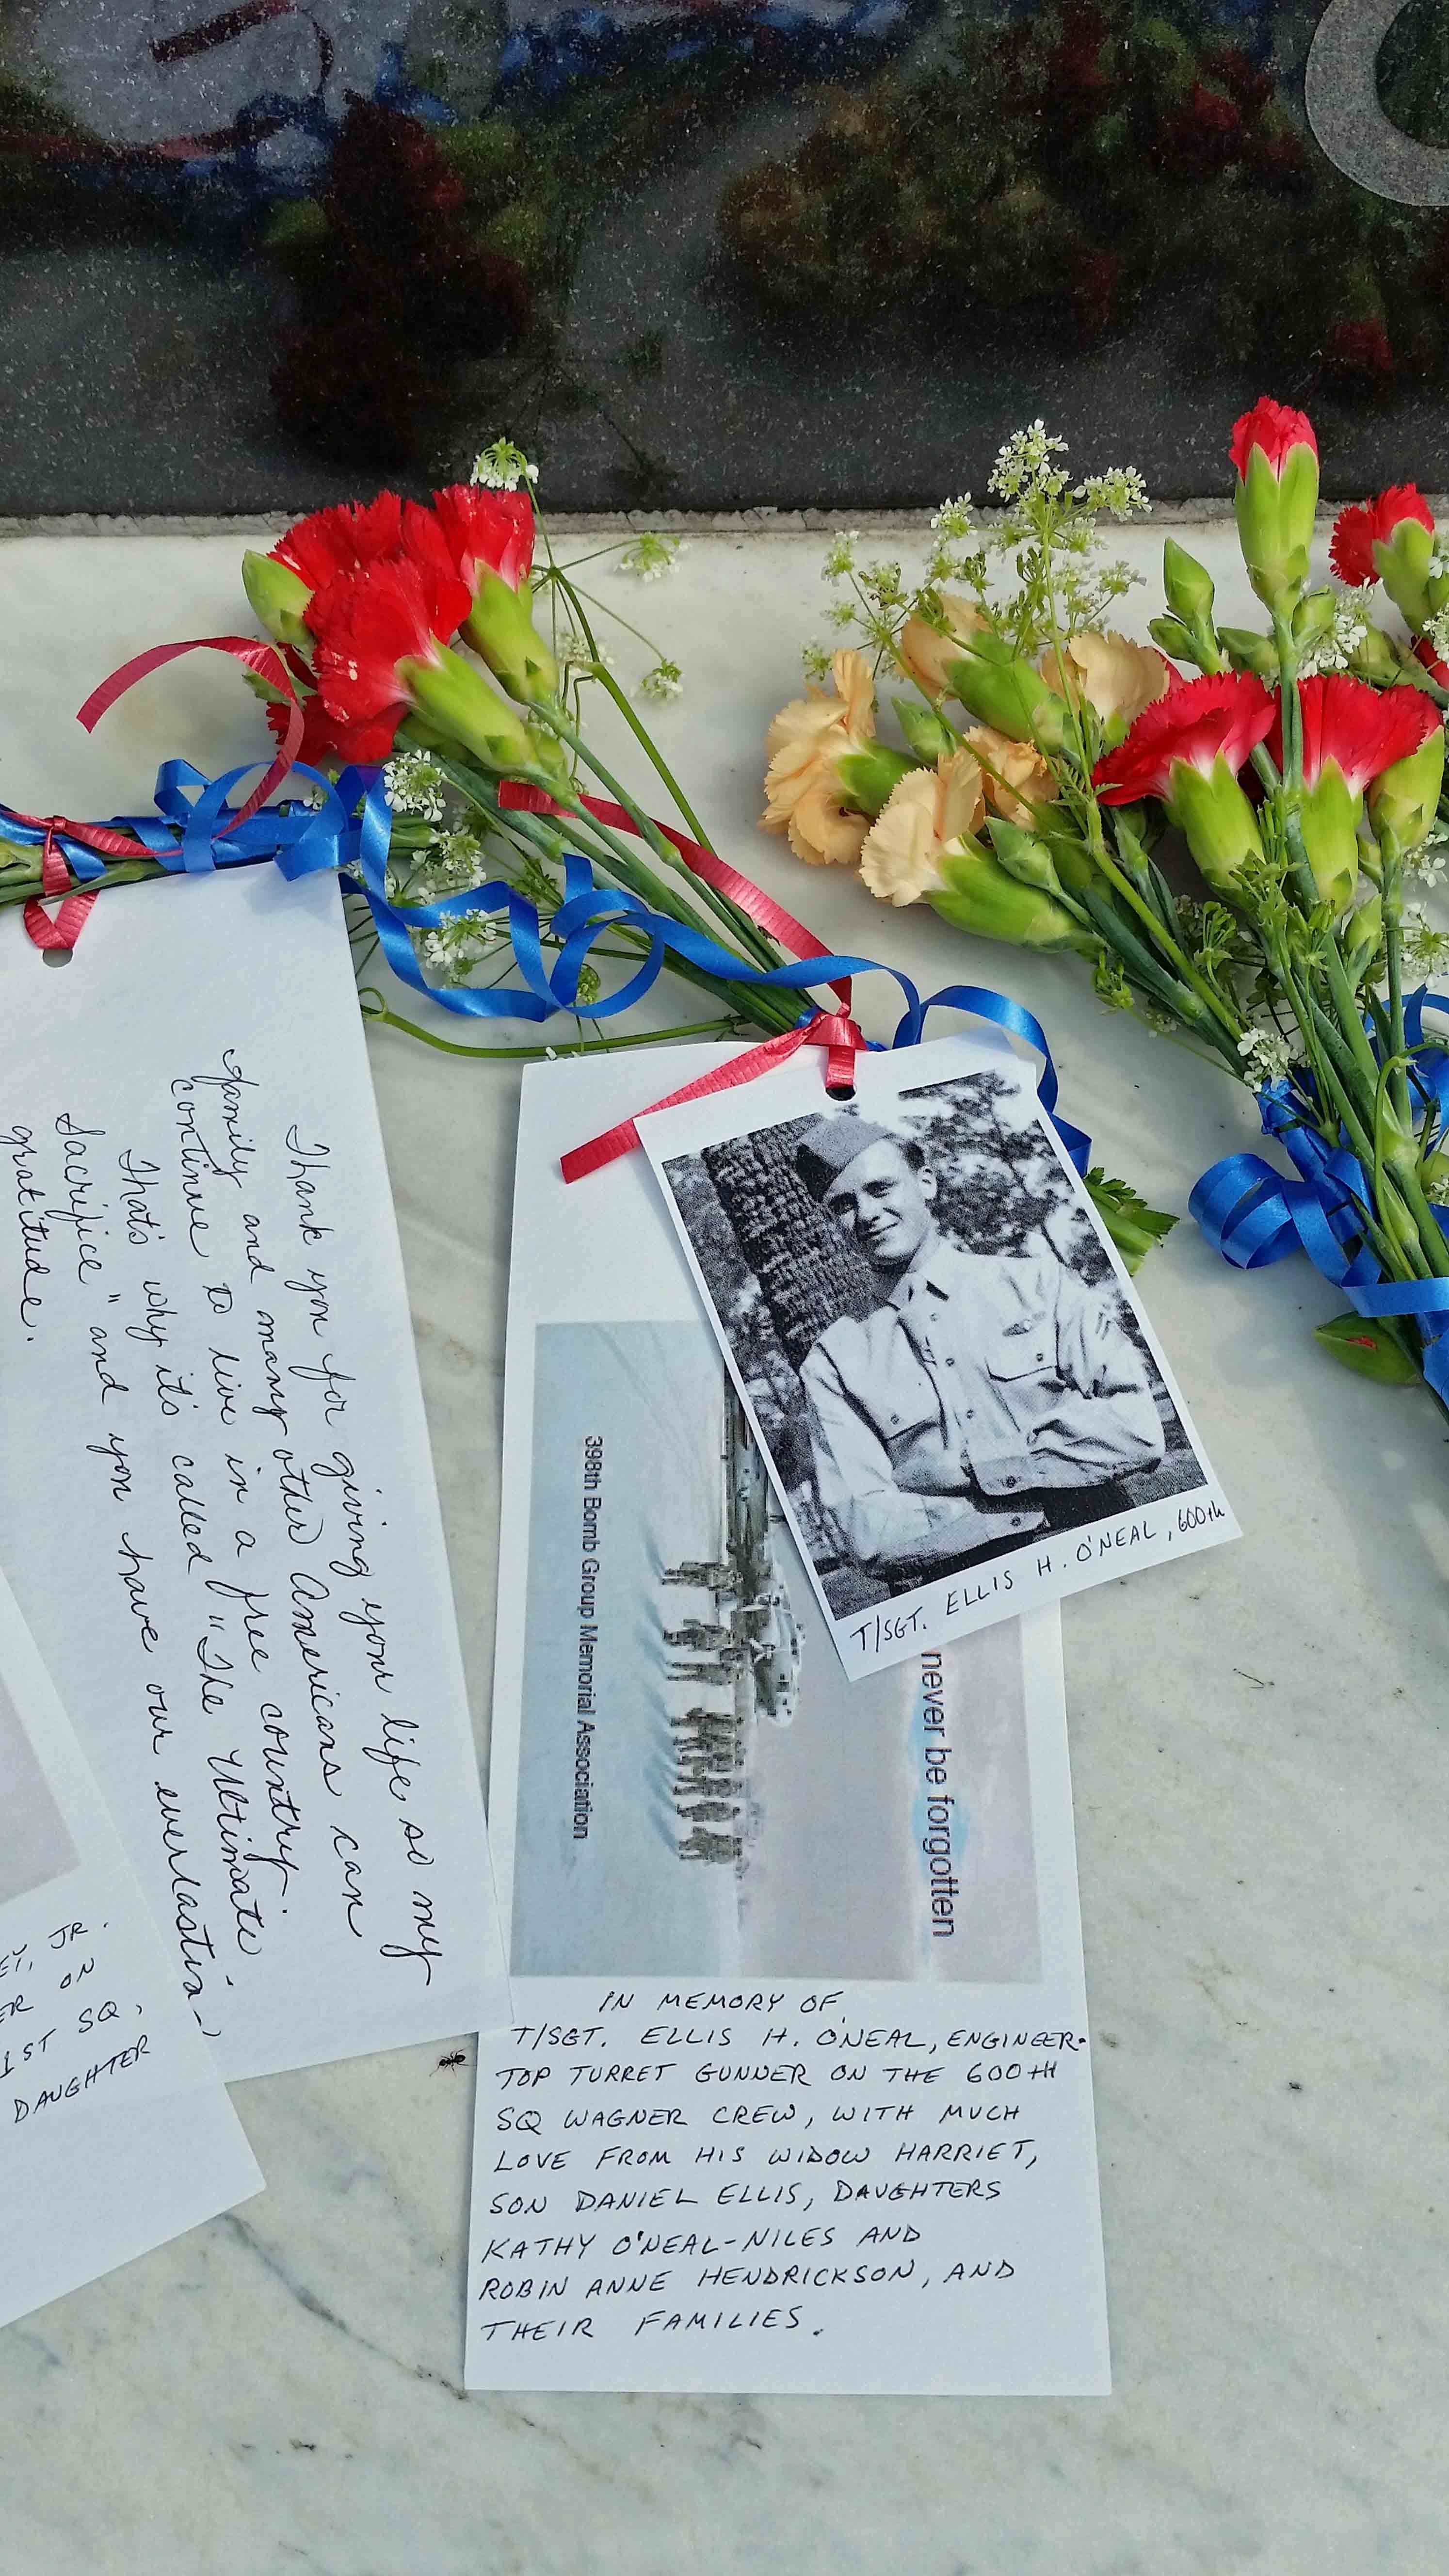 Thank you for giving your life so my
family and many other Americans can
continue to live in a free country.
That's why it's called "The Ultimate
Sacrifice" and you have our everlasting
gratitude.
T/SGT. ELLIS H. O'NEAL, 600th
never be forgotten
398th Bomb Group Memorial Association
IN MEMORY OF
T/SGT. ELLIS H. O'NEAL, ENGINEER-
TOP TURRET GUNNER ON THE 600TH
SQ WAGNER CREW, WITH MUCH
LOVE FROM HIS WIDOW HARRIET,
SON DANIEL ELLIS, DAUGHTERS
KATHY O'NEAL-NILES AND
ROBIN ANNE HENDRICKSON, AND
THEIR FAMILIES.
JR.
ON
1ST SQ,
DAUGHTER